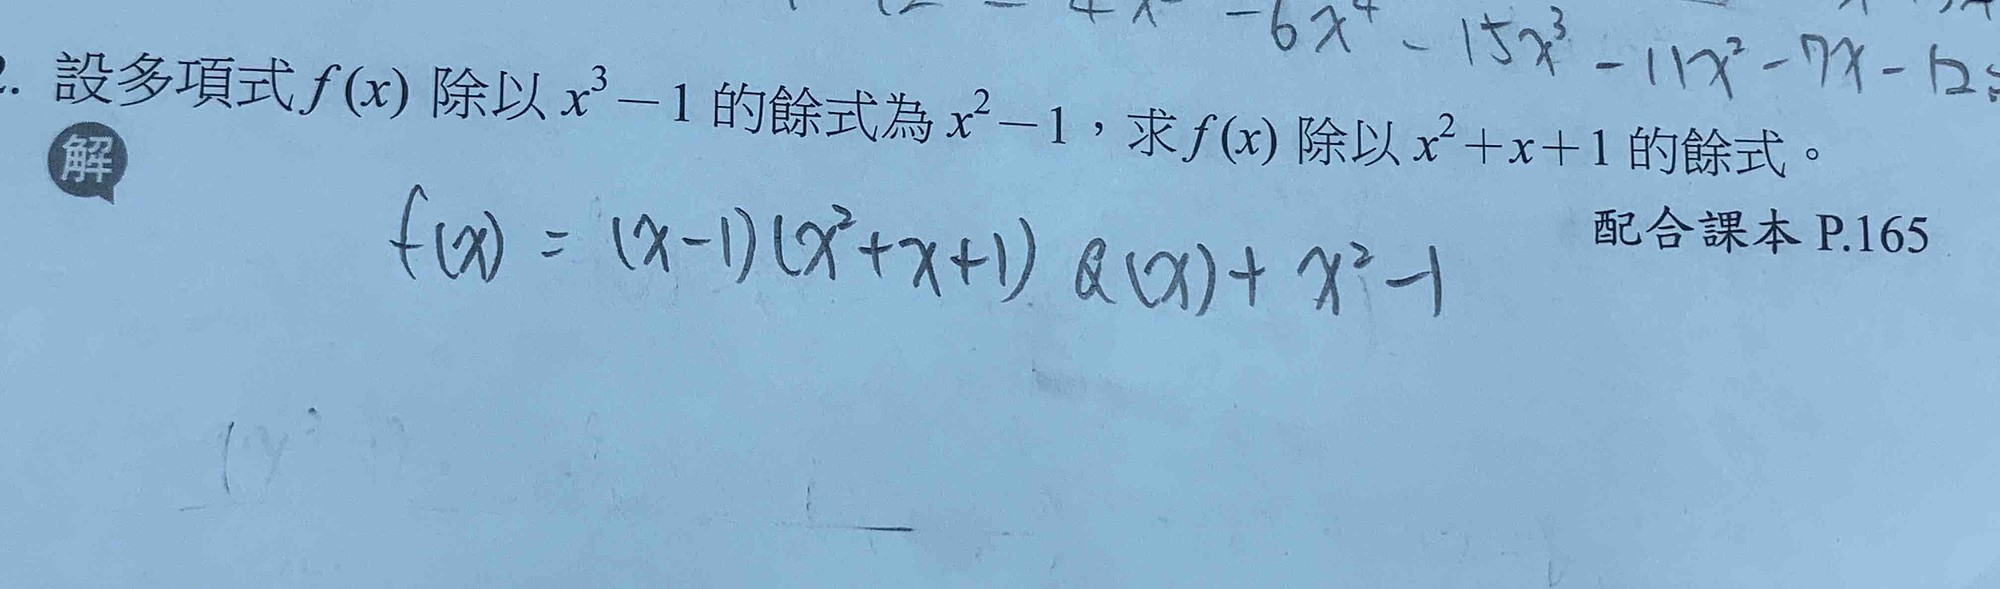 -6x⁴ - 15x³ - 11x² - 7x - 12
2. 設多項式 f(x) 除以 x³－1 的餘式為 x²－1，求 f(x) 除以 x²＋x＋1 的餘式。
解
配合課本 P.165
f(x) = (x-1)(x²+x+1) Q(x) + x²-1